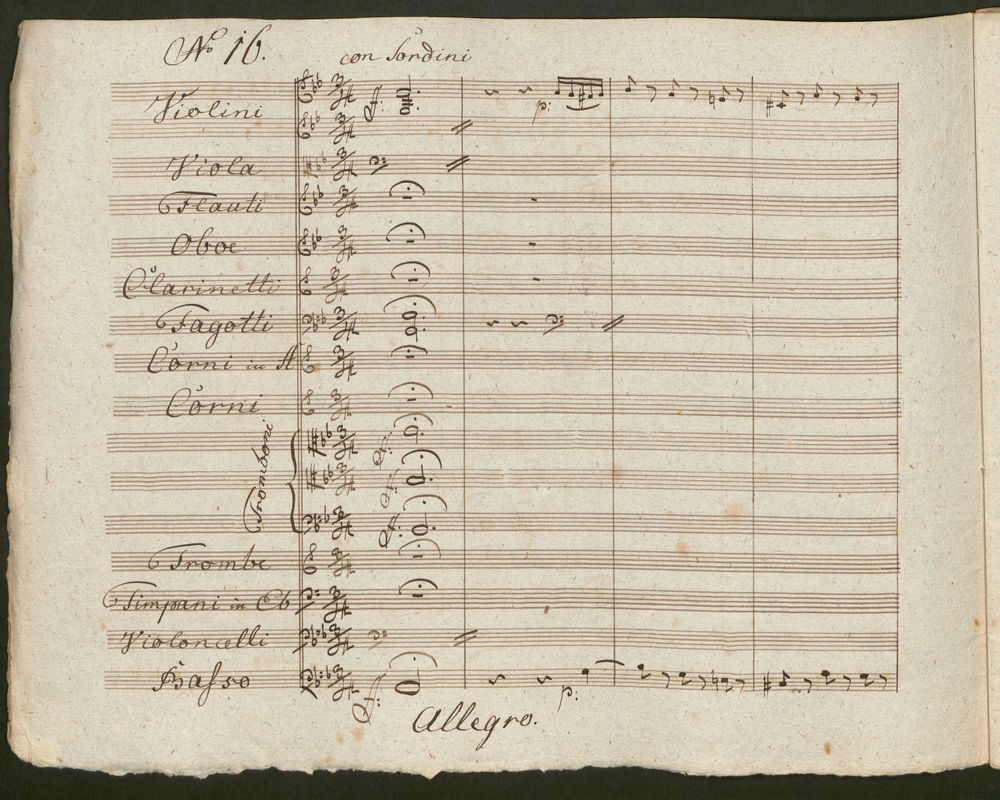 No 16. con Sordini
Violini
Viola
Flauti
Oboe
Clarinetti
Fagotti
Corni in A
Corni
Tromboni
Trombe
Timpani in Eb
Violoncelli
Basso
Allegro.